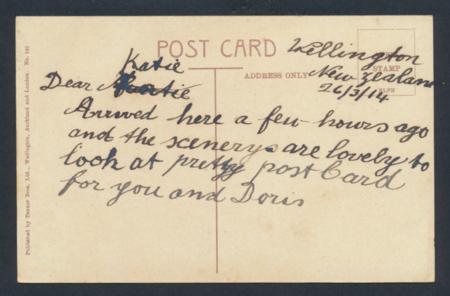 POST CARD
Wellington
New Zealand
26/3/14
ADDRESS ONLY
STAMP
Katie
Dear
Arrived here a few hours ago
and the scenerys are lovely to
look at pretty post Card
for you and Doris
Published by Tanner Bros, Ltd., Wellington, Auckland and London. No. 191